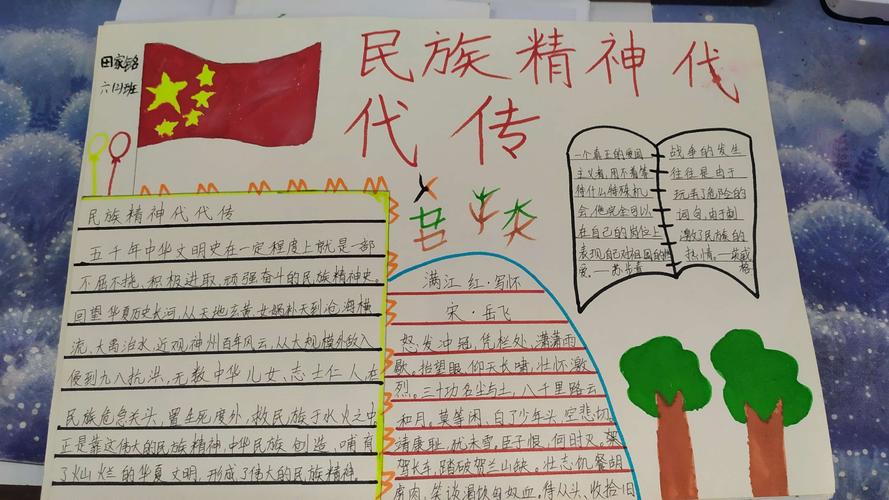 民族精神代
代传
田家铭
六(2)班
民族精神代代传
五千年中华文明史在一定程度上就是一部
不屈不挠、积极进取、顽强奋斗的民族精神史。
回望华夏历史长河,从天地玄黄、女娲补天到沧海横
流、大禹治水,近观神州百年风云,从大规模外敌入
侵到九八抗洪,无数中华儿女、志士仁人在
民族危急关头,置生死度外,救民族于水火之中
正是靠这伟大的民族精神,中华民族创造、哺育
了灿烂的华夏文明,形成了伟大的民族精神。
满江红·写怀
宋·岳飞
怒发冲冠,凭栏处、潇潇雨
歇。抬望眼,仰天长啸,壮怀激
烈。三十功名尘与土,八千里路云
和月。莫等闲、白了少年头,空悲切
靖康耻,犹未雪。臣子恨,何时灭。
驾长车,踏破贺兰山缺。壮志饥餐胡
虏肉,笑谈渴饮匈奴血。待从头、收拾旧
一个真正的爱国
主义者,用不着等
待什么特殊机
会,他完全可以
在自己的岗位上
表现自己对祖国的热
爱。——苏步青
战争的发生
往往是由于
玩弄了危险的
词句,由于刺
激了民族的
热情。——